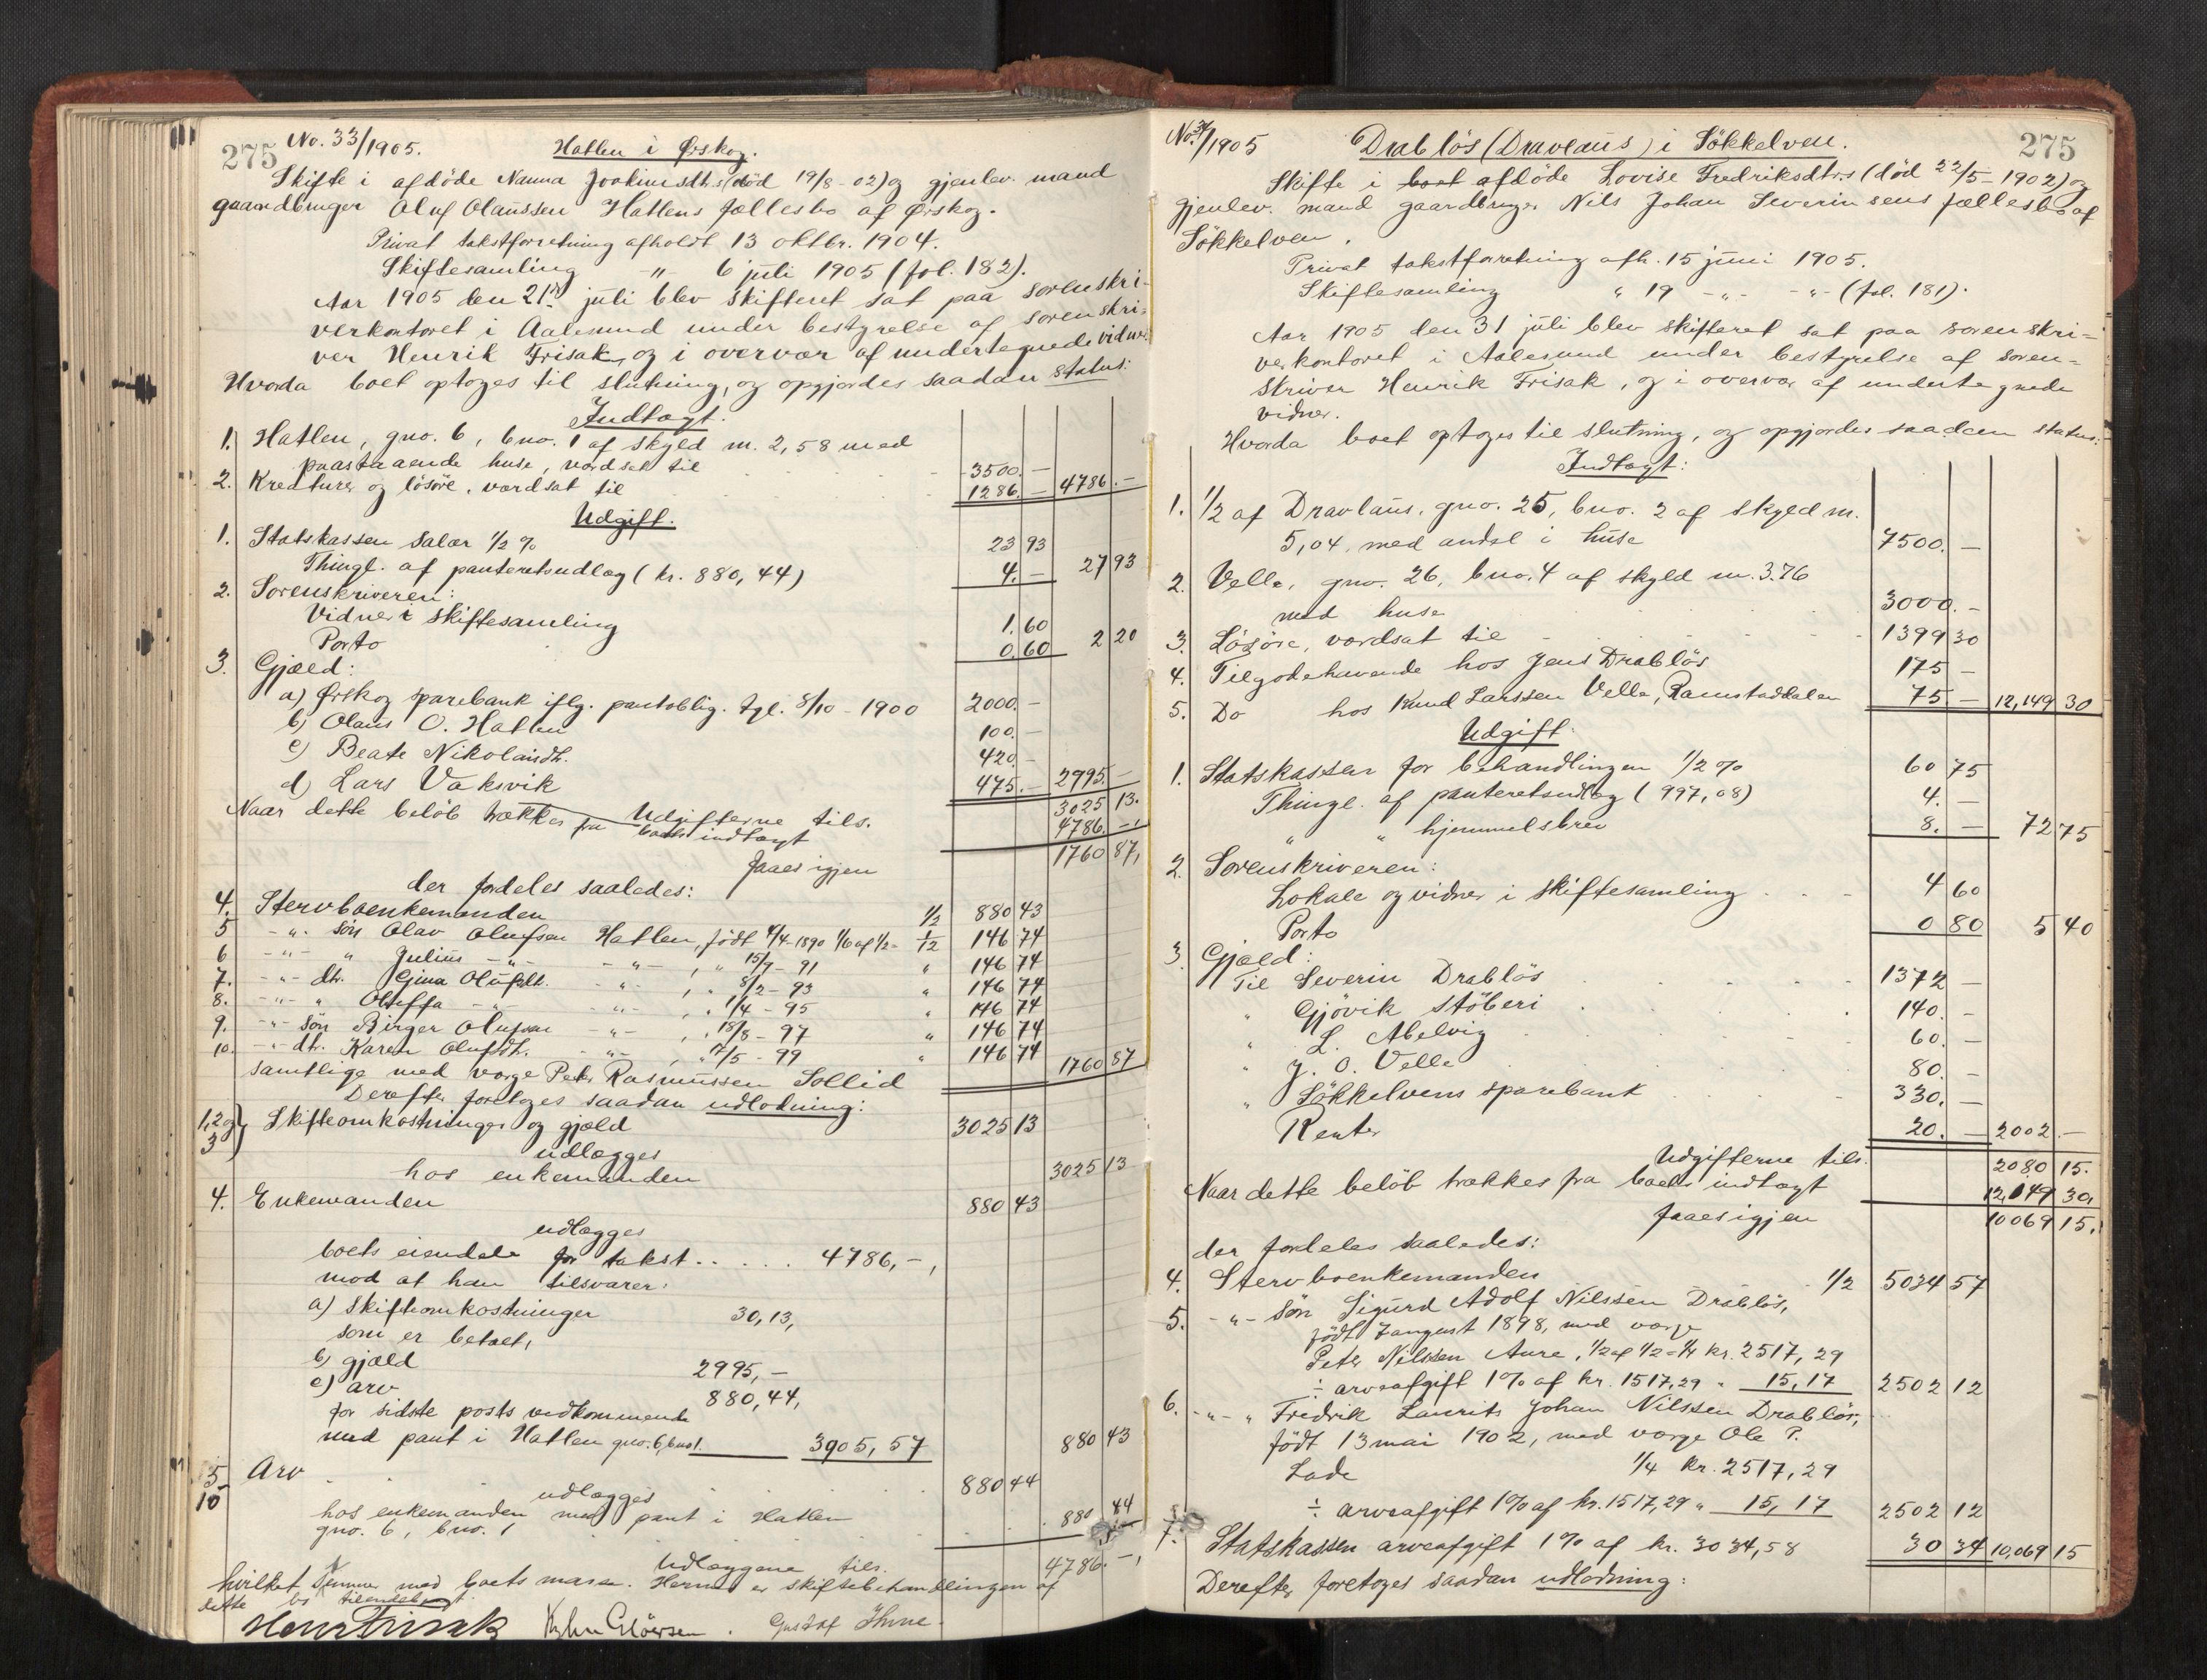 275 No. 33/1905. Hatlen i Ørskog.
Skifte i afdöde Nanna Joakimsdtrs (död 19/8-02) og gjenlev. mand
gaardbruger Oluf Olaussen Hatlens fællesbo af Ørskog.
Privat takstforretning afholdt 13 oktbr. 1904.
Skiftesamling -"- 6 juli 1905 (fol. 182).
Aar 1905 den 21de juli blev skifteret sat paa sorenskri-
verkontoret i Aalesund under bestyrelse af sorenskri-
ver Henrik Frisak, og i overvær af undertegnede vidner.
Hvorda boet optoges til slutning, og opgjordes saadan status:
Indtægt.
1. Hatlen, gno. 6, bno. 1 af skyld m. 2,58 med
paastaaende huse, værdsat til 3500. —
2. Kreaturer og lösöre, værdsat til 1286. — 4786. —
Udgift.
1. Statskassen salær 1/2 % 23 93
Thingl. af panteretsudlæg (kr. 880,44) 4. — 27 93
2. Sorenskriveren:
Vidner i skiftesamling 1. 60
Porto 0. 60 2 20
3. Gjæld:
a) Ørskog sparebank iflg. pantoblig. tgl. 8/10 - 1900 2000. —
b) Olaus O. Hatlen 100. —
c) Beate Nikolaisdt. 420. —
d) Lars Vaksvik 475. — 2995. —
Udgifterne tils. 3025 13.
Naar dette belöb trækkes fra boets indtægt 4786. —,
faaes igjen 1760 87,
der fordeles saaledes:
4. Stervboenkemanden 1/2 880 43
5 -"- sön Olav Olufsen Hatlen, födt 4/4-1890 1/6 af 1/2 = 1/12 146 74
6 -"- " Julius -"- -"- , " 15/7 - 91 " 146 74
7. -"- dtr. Gina Olufsdt. -"- , " 8/2 - 93 " 146 74
8. -"- " Oluffa -"- -"- , " 1/4 - 95 " 146 74
9. -"- sön Birger Olufsen -"- , " 18/8 - 97 " 146 74
10. -"- dtr. Karen Olufsdt. -"- , " 17/5 - 99 " 146 74 1760 87
samtlige med værge Peter Rasmussen Sollid
Derefter foretoges saadan udlodning:
1, 2 og 3 } Skifteomkostninger og gjæld 3025 13
udlægges
hos enkemanden 3025 13
4. Enkemanden 880 43
udlægges
boets eiendele for takst . . . . . 4786, —,
mod at han tilsvarer:
a) skifteomkostninger 30,13,
som er betalt,
b) gjæld 2995, —
c) arv 880,44,
for sidste posts vedkommende
med pant i Hatlen gno. 6, bno 1. 3905,57 880 43
5-10 Arv 880 44
udlægges
hos enkemanden med pant i Hatlen
gno. 6, bno. 1 880 44
Udlæggene tils. 4786. —,
hvilket stemmer med boets masse. Hermed er skiftebehandlingen af
dette bo tilendebragt.
Henr Frisak Gustaf Ihme
No. 34/1905 Drablös (Dravlaus) i Sökkelven. 275
Skifte i boet afdöde Lovise Fredriksdtrs (död 22/5-1902) og
gjenlev. mand gaardbruger Nils Johan Severinsens fællesbo af
Sökkelven.
Privat takstforretning afh. 15 juni 1905.
Skiftesamling " 19 -"- -"- (fol. 181).
Aar 1905 den 31 juli blev skifteret sat paa sorenskri-
verkontoret i Aalesund under bestyrelse af soren-
skriver Henrik Frisak, og i overvær af undertegnede
vidner.
Hvorda boet optoges til slutning, og opgjordes saadan status:
Indtægt:
1. 1/2 af Dravlaus, gno. 25, bno. 2 af skyld m.
5,04, med andel i huse 7500. —
2. Velle, gno. 26, bno. 4 af skyld m. 3.76
med huse 3000. —
3. Lösöre, værdsat til 1399 30
4. Tilgodehavende hos Jens Drablös 175 —
5. Do hos Knud Larssen Velle, Ramstaddalen 75 — 12,149 30
Udgift.
1. Statskassen for behandlingen 1/2 % 60 75
Thingl. af panteretsudlæg (997,08) 4. —
" " hjemmelsbrev 8. — 72 75
2. Sorenskriveren:
Lokale og vidner i skiftesamling 4 60
Porto 0 80 5 40
3. Gjæld:
Til Severin Drablös 1372 —
" Gjövik stöberi 140. —
" L. Abelvig 60. —
" J. O. Velle 80. —
" Sökkelvens sparebank 330. —
Renter 20. — 2002. —
Udgifterne tils. 2080 15.
Naar dette belöb trækkes fra boets indtægt 12,149 30,
faaes igjen 10069 15.
der fordeles saaledes:
4. Stervboenkemanden 1/2 5034 57
5. -"- sön Sigurd Adolf Nilssen Drablös,
födt 7 august 1898, med værge
Peter Nilssen Aure, 1/2 af 1/2 = 1/4 kr. 2517,29
÷ arveafgift 1 % af kr. 1517,29 " 15,17 2502 12
6. -"- " Fredrik Laurits Johan Nilssen Drablös,
födt 13 mai 1902, med værge Ole P.
Lade 1/4 kr. 2517,29
÷ arveafgift 1 % af kr. 1517,29 " 15,17 2502 12
7. Statskassen arveafgift 1 % af kr. 3034,58 30 34 10,069 15
Derefter foretoges saadan udlodning: